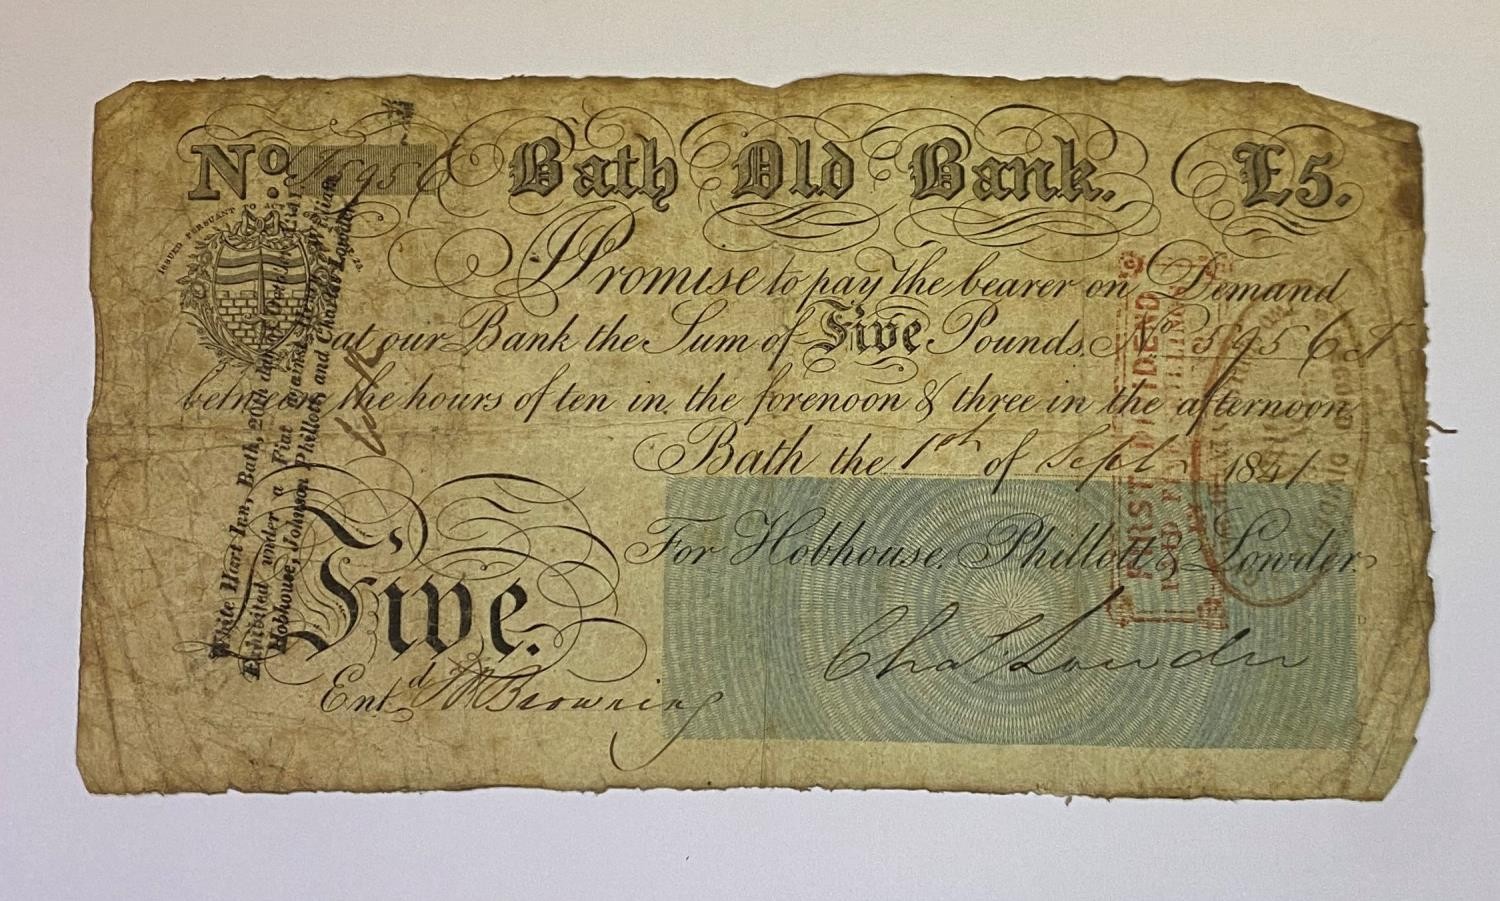 No. 5956 Bath Old Bank. £5.
ISSUED PERSUANT TO ACT
I Promise to pay the bearer on Demand
at our Bank the Sum of Five Pounds. No 5956
between the hours of ten in the forenoon & three in the afternoon.
Bath the 1st of Sept 1841
For Hobhouse, Phillott & Lowder.
Chas Lowder
Five.
Entd Browning
White Hart Inn, Bath, 20th day of
Exhibited under a Fiat against
Hobhouse, Johnson Phillott, and Charles Lowder
FIRST DIVIDEND
SECOND DIVIDEND